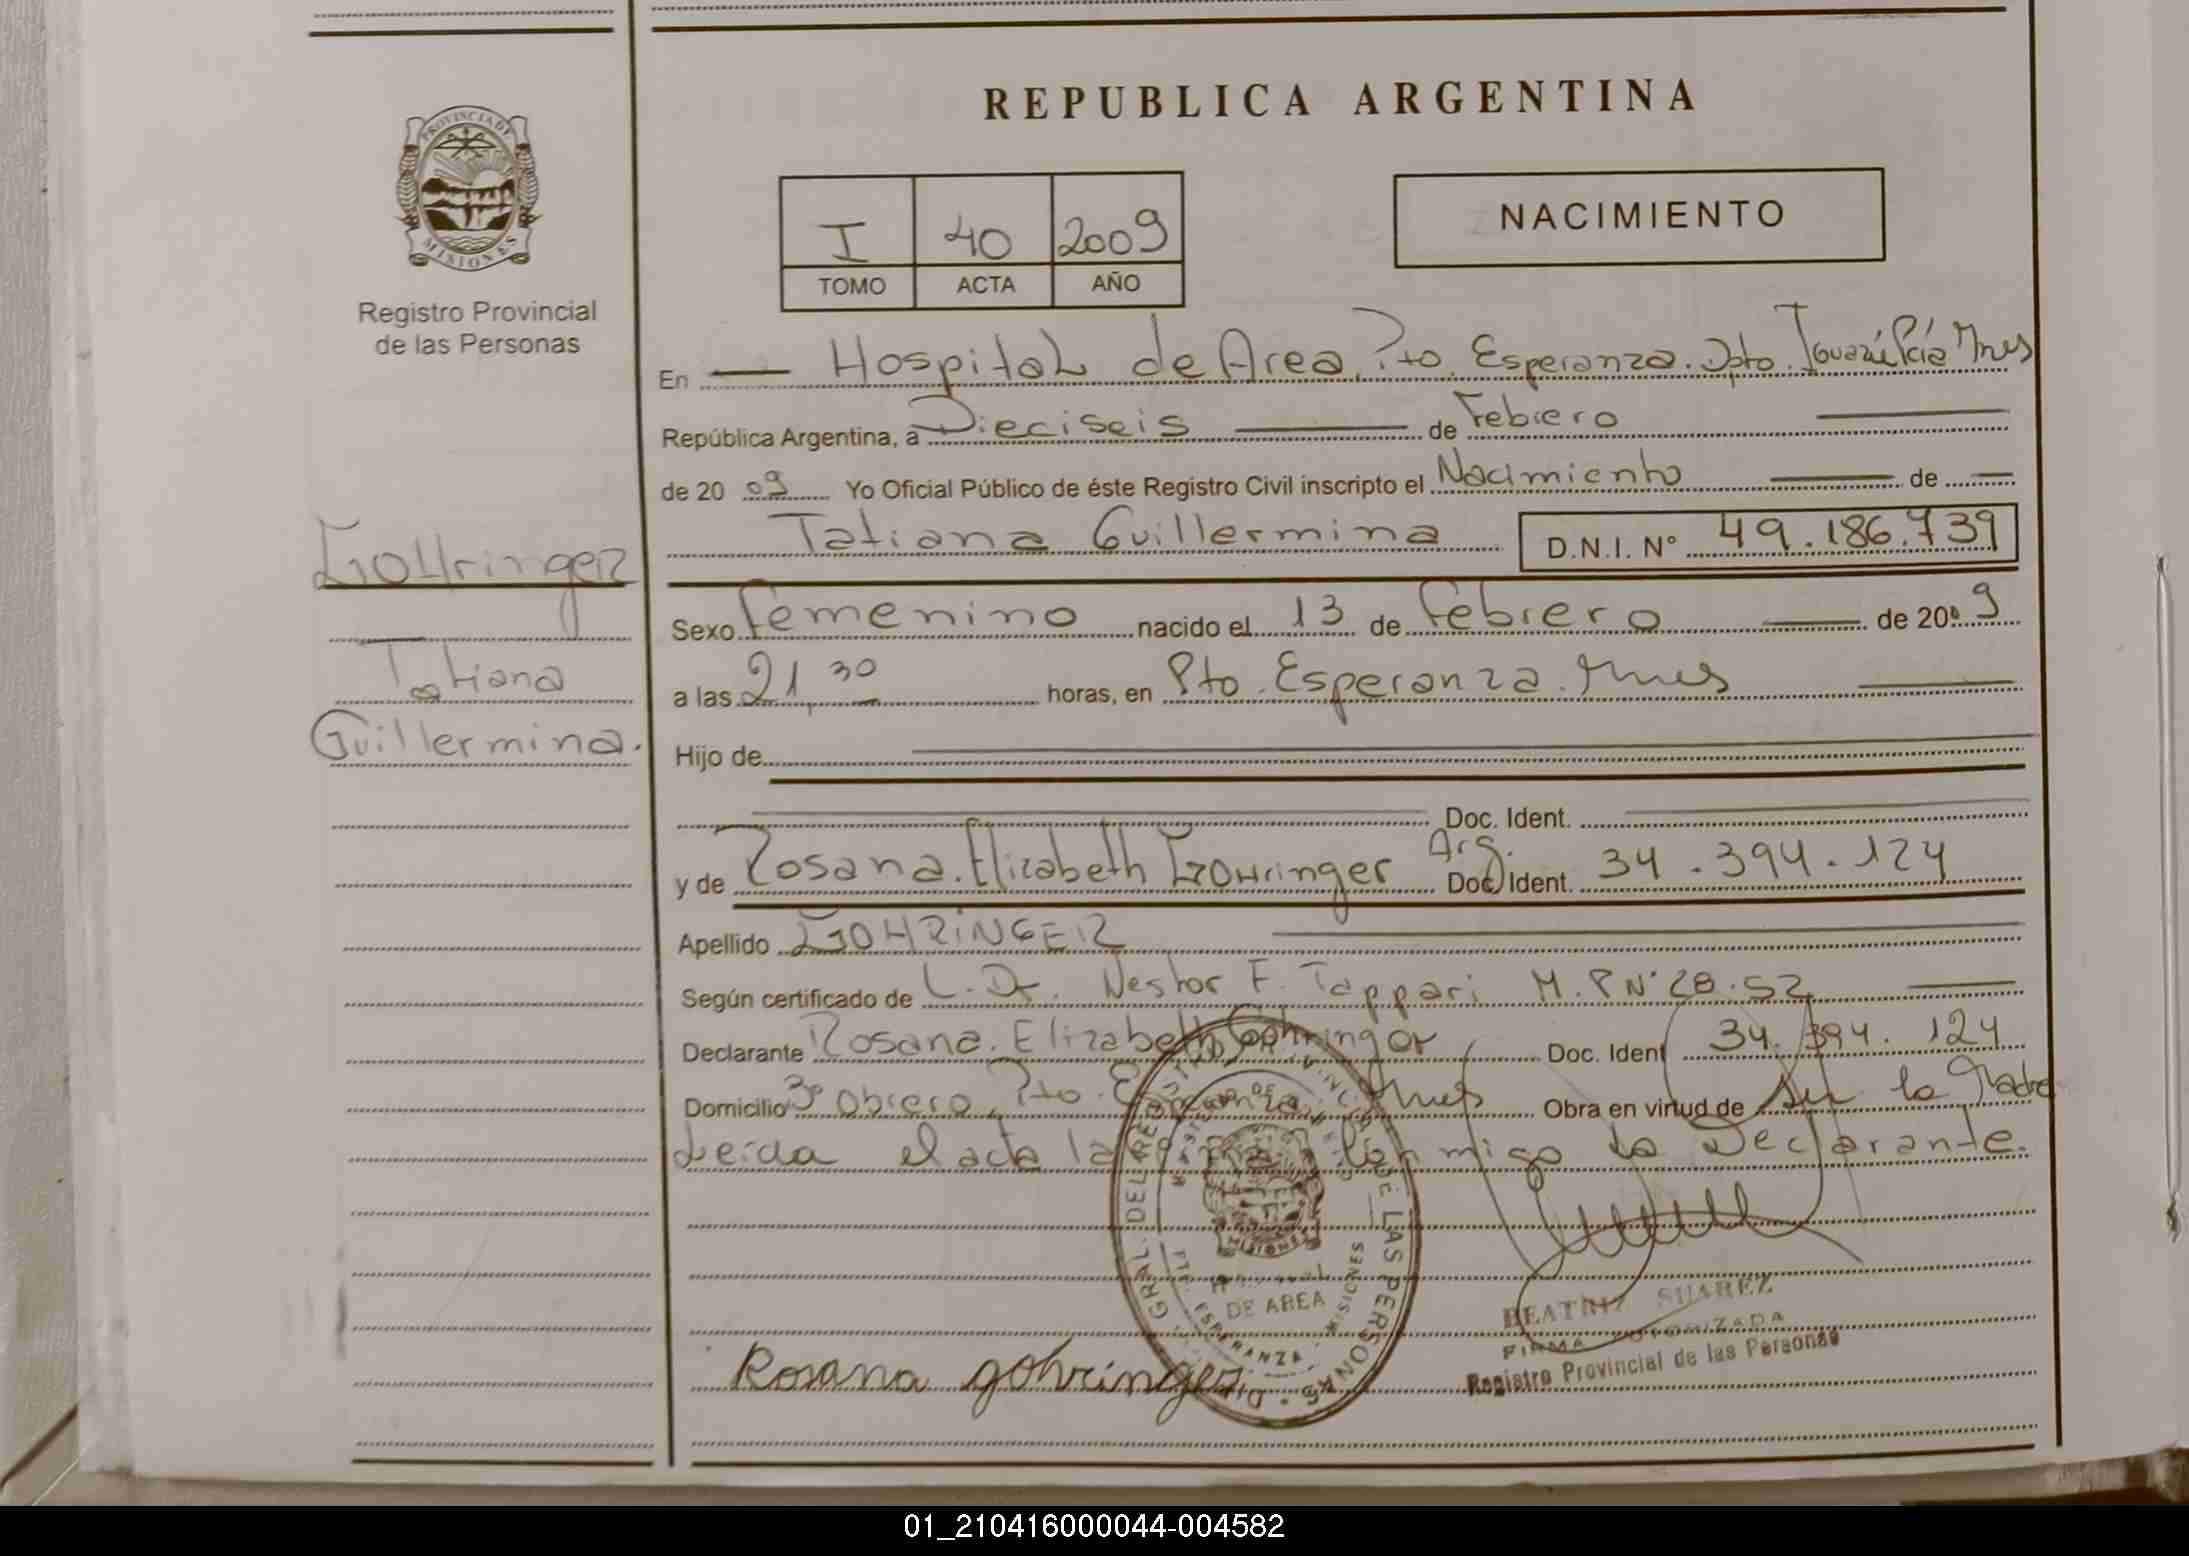 REPUBLICA ARGENTINA
PROVINCIA DE
MISIONES
Registro Provincial
de las Personas
I 40 2009
TOMO ACTA AÑO
NACIMIENTO
En Hospital de Area, Pto. Esperanza. Dpto. Iguazú Pcia Mnes
República Argentina, a Dieciseis de Febrero
de 2009 Yo Oficial Público de éste Registro Civil inscripto el Nacimiento de
Tatiana Guillermina D.N.I. N° 49.186.739
GOHringer
Tatiana
Guillermina.
Sexo Femenino nacido el 13 de Febrero de 2009
a las 21,30 horas, en Pto. Esperanza. Mnes
Hijo de
Doc. Ident.
y de Rosana. Elizabeth GOHringer Arg. Doc. Ident. 34.394.124
Apellido GOHRINGER
Según certificado de L. Dr. Nestor F. Tappari M.P.N° 28.52
Declarante Rosana. Elizabeth Gohringer Doc. Ident 34.394.124
Domicilio 3° Obrero, Pto. Esperanza. Mnes Obra en virtud de ser la Madre
Leida el acta la firma conmigo la Declarante.
DIR. GRAL. DEL REG. DE LAS PERSONAS
MISIONES
DE AREA
PTO. ESPERANZA - MISIONES
BEATRIZ SUAREZ
FIRMA AUTORIZADA
Registro Provincial de las Personas
Rosana gohringer
01_210416000044-004582